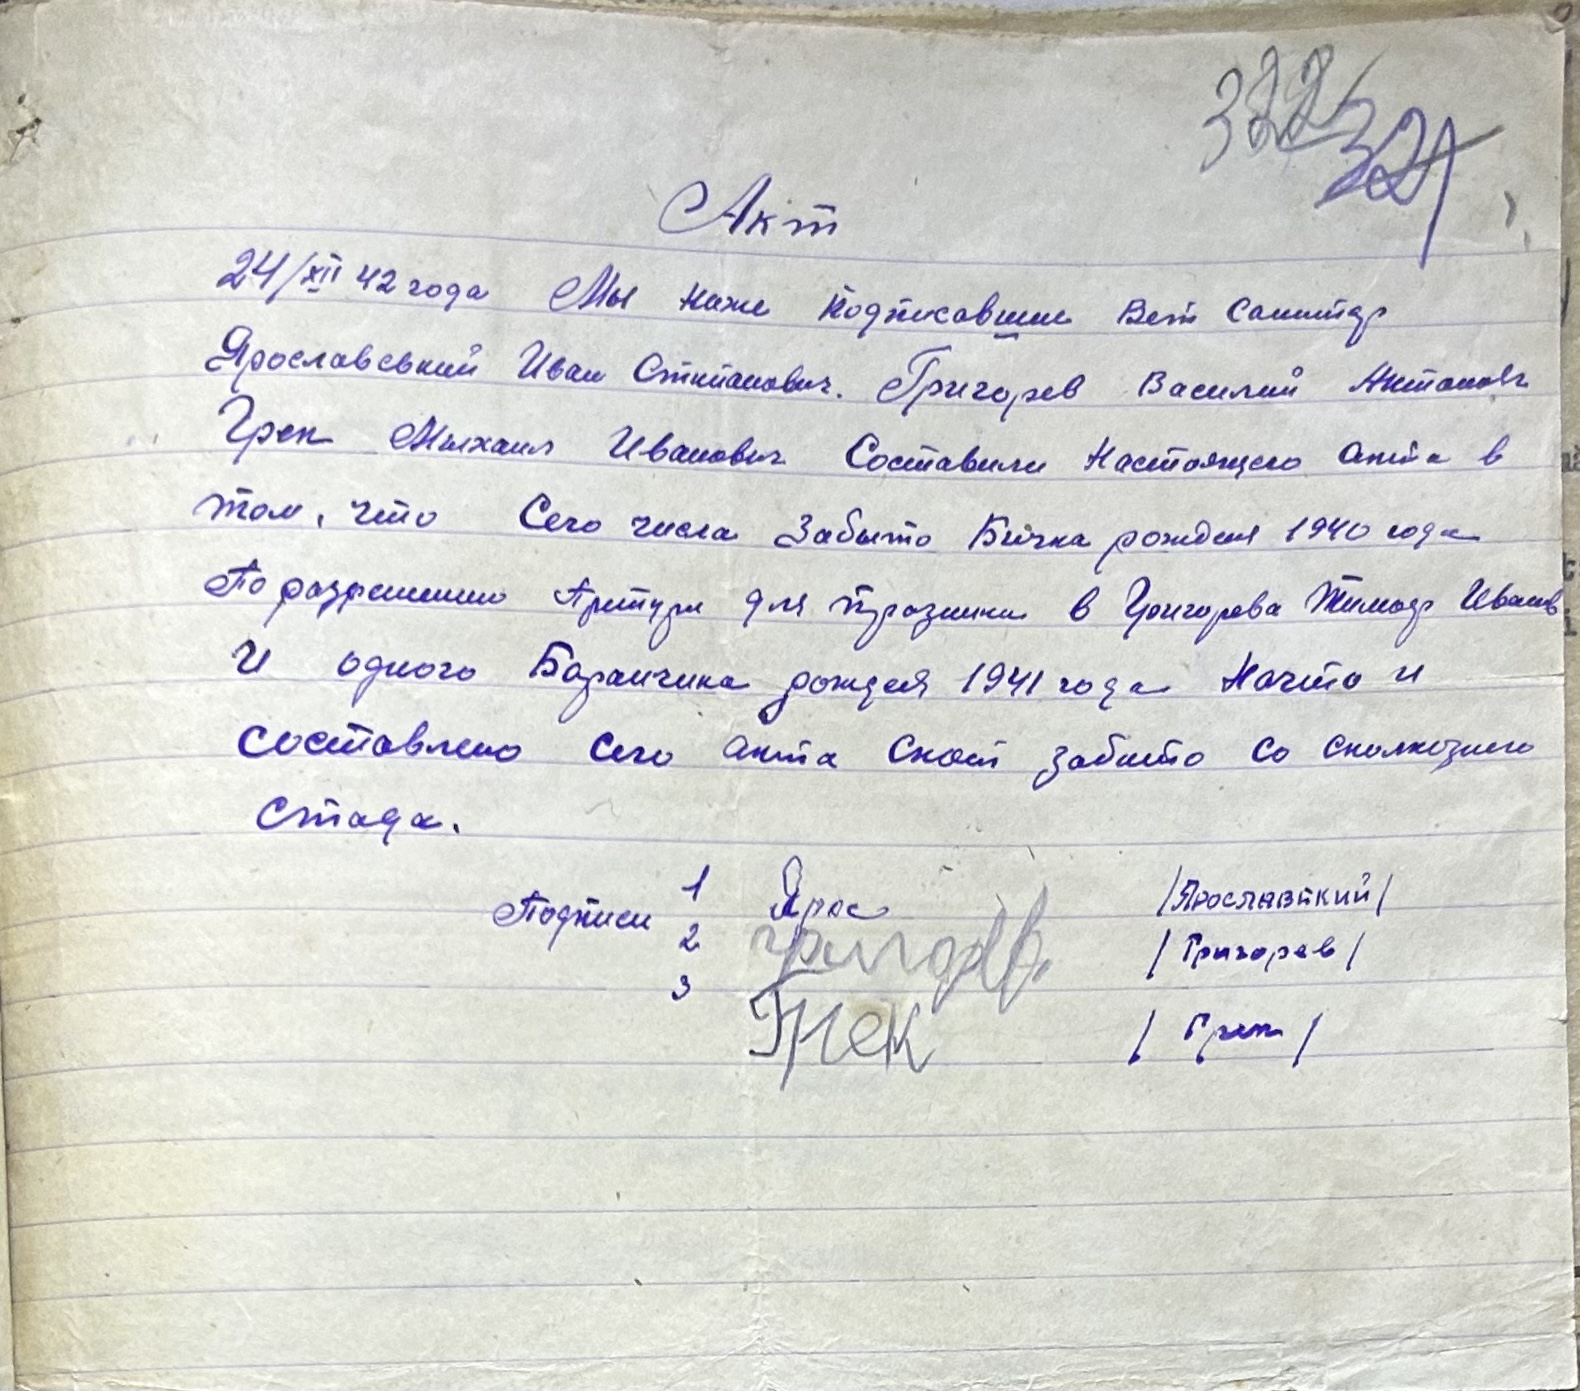 322 321
Акт
24/XII 42 года Мы ниже подписавшие Вет Санитар
Ярославський Иван Степанович. Григорев Василий Антонов
Грек Мыхаил Иванович Составили Настоящего акта в
том, что Сего числа Забыто Бычка рождения 1940 года
По разрешению для празника в Григорева Тимофр Иванов
И одного Баранчика рождея 1941 года Начто и
составлено сего акта Скот забито со сколхозного
стада.
Подписи 1 Ярос /Ярославткий/
2 Григорев /Григорев/
3 Грек /Грек/